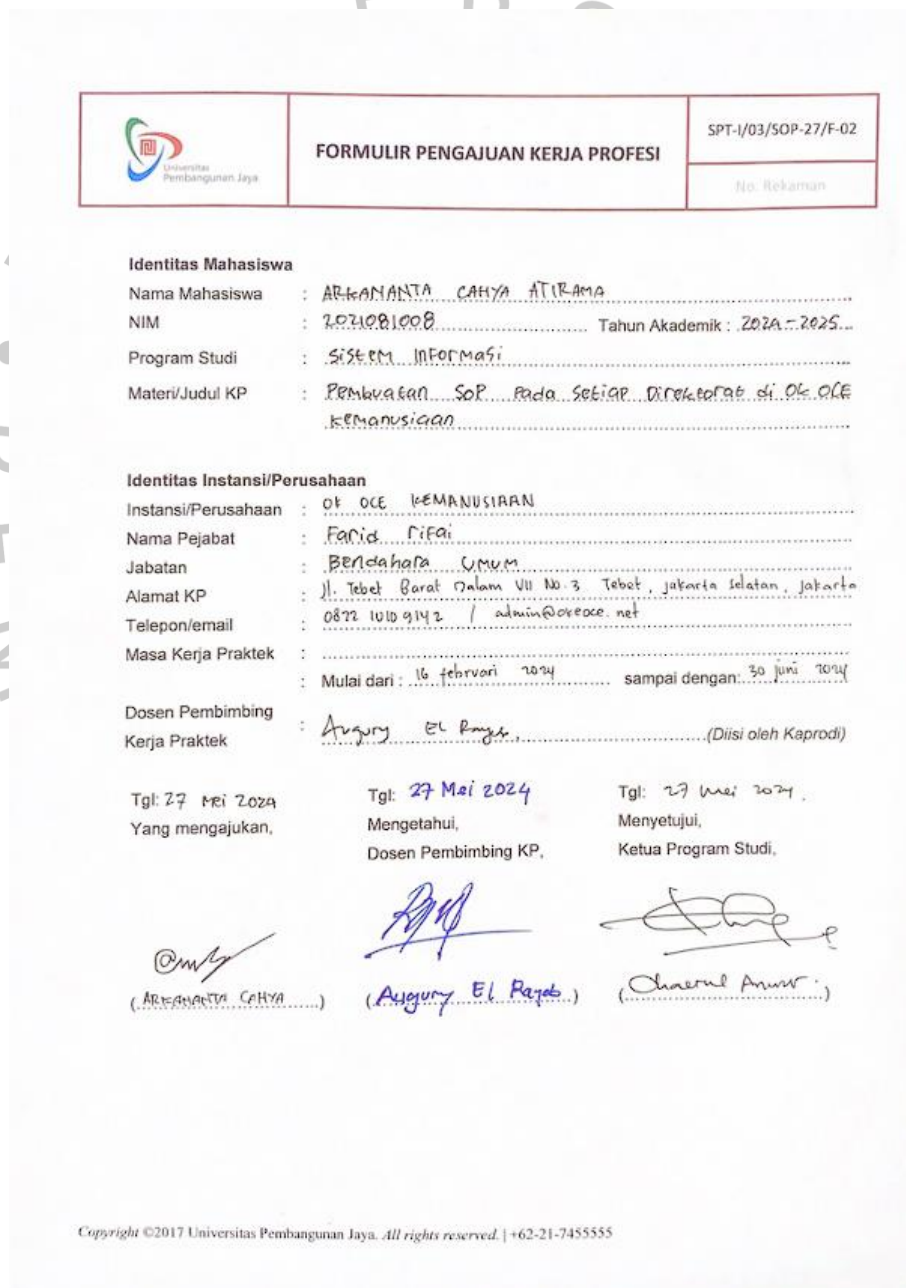 Universitas
Pembangunan Jaya
FORMULIR PENGAJUAN KERJA PROFESI
SPT-I/03/SOP-27/F-02
No. Rekaman
Identitas Mahasiswa
Nama Mahasiswa : ARKANANTA CAHYA ATIRAMA
NIM : 2021081008 Tahun Akademik : 2024-2025
Program Studi : Sistem Informasi
Materi/Judul KP : Pembuatan SOP Pada Setiap Direktorat di OK OCE
Kemanusiaan
Identitas Instansi/Perusahaan
Instansi/Perusahaan : OK OCE KEMANUSIAAN
Nama Pejabat : Farid Rifai
Jabatan : Bendahara Umum
Alamat KP : Jl. Tebet Barat Dalam VII No.3 Tebet, Jakarta Selatan, Jakarta
Telepon/email : 0822 1010 9142 / admin@okeoce.net
Masa Kerja Praktek :
: Mulai dari : 16 februari 2024 sampai dengan: 30 juni 2024
Dosen Pembimbing
Kerja Praktek : Augury El Rayeb, (Diisi oleh Kaprodi)
Tgl: 27 Mei 2024 Tgl: 27 Mei 2024 Tgl: 27 Mei 2024
Yang mengajukan, Mengetahui, Menyetujui,
Dosen Pembimbing KP, Ketua Program Studi,
(ARKANANTA CAHYA) (Augury El Rayeb) (Chaerul Anwar)
Copyright ©2017 Universitas Pembangunan Jaya. All rights reserved. | +62-21-7455555